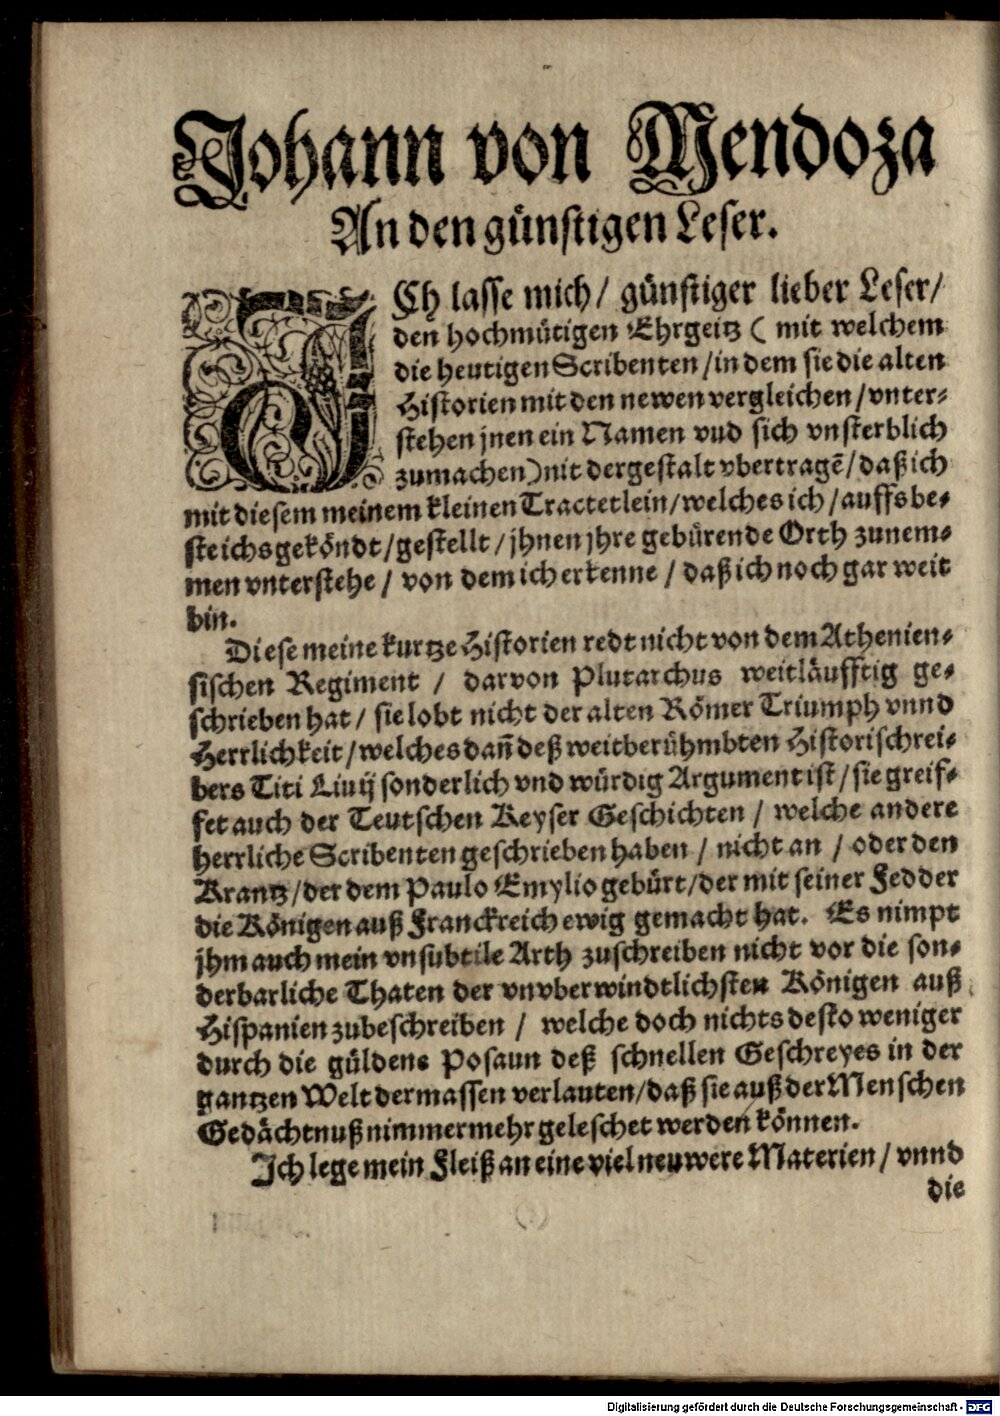 Johann von Mendoza
An den günstigen Leser.
ICh lasse mich / günstiger lieber Leser /
den hochmütigen Ehrgeitz ( mit welchem
die heutigen Scribenten / in dem sie die alten
Historien mit den newen vergleichen / vnter-
stehen jnen ein Namen vnd sich vnsterblich
zumachen ) nit dergestalt vbertragē / daß ich
mit diesem meinem kleinen Tractetlein / welches ich / auffs be-
ste ichs geköndt / gestellt / jhnen jhre gebürende Orth zunem-
men vnterstehe / von dem ich erkenne / daß ich noch gar weit
bin.
Diese meine kurtze Historien redt nicht von dem Athenien-
sischen Regiment / darvon Plutarchus weitläufftig ge-
schrieben hat / sie lobt nicht der alten Römer Triumph vnnd
Herrlichkeit / welches dañ deß weitberühmbten Historischrei-
bers Titi Liuij sonderlich vnd würdig Argument ist / sie greif-
fet auch der Teutschen Keyser Geschichten / welche andere
herrliche Scribenten geschrieben haben / nicht an / oder den
Krantz / der dem Paulo Emylio gebürt / der mit seiner Fedder
die Königen auß Franckreich ewig gemacht hat. Es nimpt
jhm auch mein vnsubtile Arth zuschreiben nicht vor die son-
derbarliche Thaten der vnvberwindtlichsten Königen auß
Hispanien zubeschreiben / welche doch nichts desto weniger
durch die güldene Posaun deß schnellen Geschreyes in der
gantzen Welt dermassen verlauten / daß sie auß der Menschen
Gedächtnuß nimmermehr geleschet werden können.
Ich lege mein Fleiß an eine viel neuwere Materien / vnnd
die
Digitalisierung gefördert durch die Deutsche Forschungsgemeinschaft - DFG